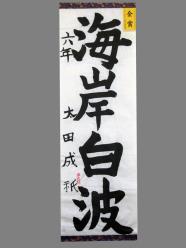 金賞
海岸白波
六年 太田成